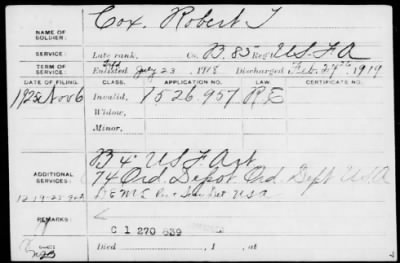 NAME OF SOLDIER: Cox, Robert T
SERVICE: Late rank, Co. B. 85 Reg't U.S.F.A
TERM OF SERVICE: Enlisted July 23, 1918 Discharged Feb. 27th, 1919
DATE OF FILING. CLASS. APPLICATION NO. LAW. CERTIFICATE NO.
1925 Nov 6 Invalid, 1526,957 R.E
Widow,
Minor,
ADDITIONAL SERVICES: B 4" U S F Art
74 Ord. Depot Ord. Dept U.S.A
U.S.A.
REMARKS:
C 1 270 639
Died , 1 , at